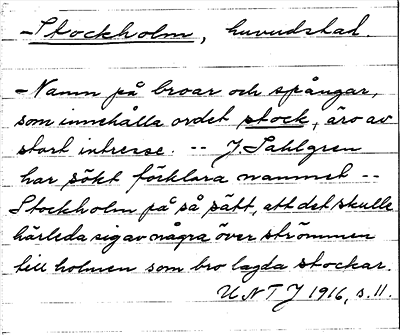 – Stockholm, huvudstad.
– Namn på broar och spångar,
som innehålla ordet stock, äro av
stort intresse. -- J. Sahlgren
har sökt förklara namnet --
Stockholm på så sätt, att det skulle
härleda sig av några över strömmen
till holmen som bro lagda stockar.
UNTJ 1916, s. 11.